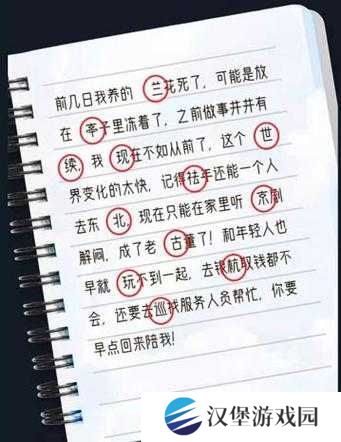 前几日我养的 兰花死了，可能是放
在 苓子里冻着了，之前做事井井有
续，我 现在不如从前了，这个 世
界变化的太快，记得祛年还能一个人
去东 北，现在只能在家里听 京剧
解闷，成了老 古董了！和年轻人也
早就 玩不到一起，去银杭取钱都不
会，还要去巡找服务人员帮忙，你要
早点回来陪我！
汉堡游戏园